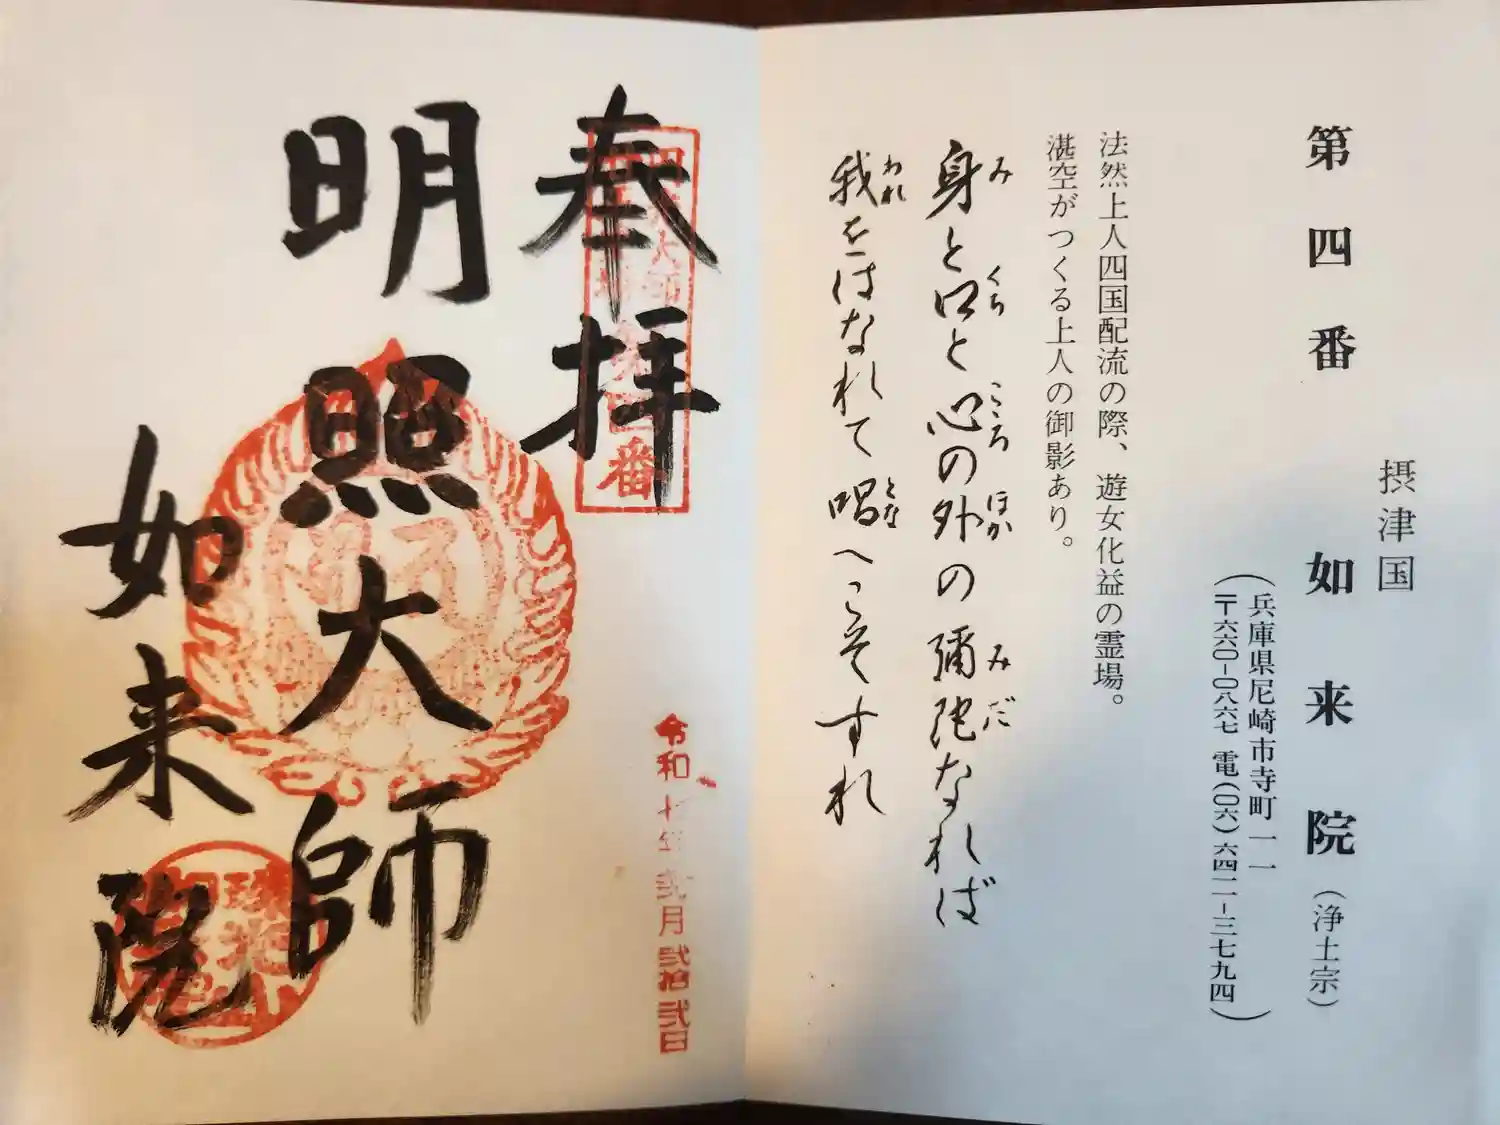 摂津国
第四番 如来院（浄土宗）
（兵庫県尼崎市寺町一一
〒六六〇-〇八六七 電（〇六）六四一一-三七九四）
法然上人四国配流の際、遊女化益の霊場。
湛空がつくる上人の御影あり。
身と口と心の外の彌陀なれば
み くち こころ ほか みだ
我をはなれて唱へこそすれ
われ とな
奉拝
令和七年弐月弐拾弐日
明照大師
如来院